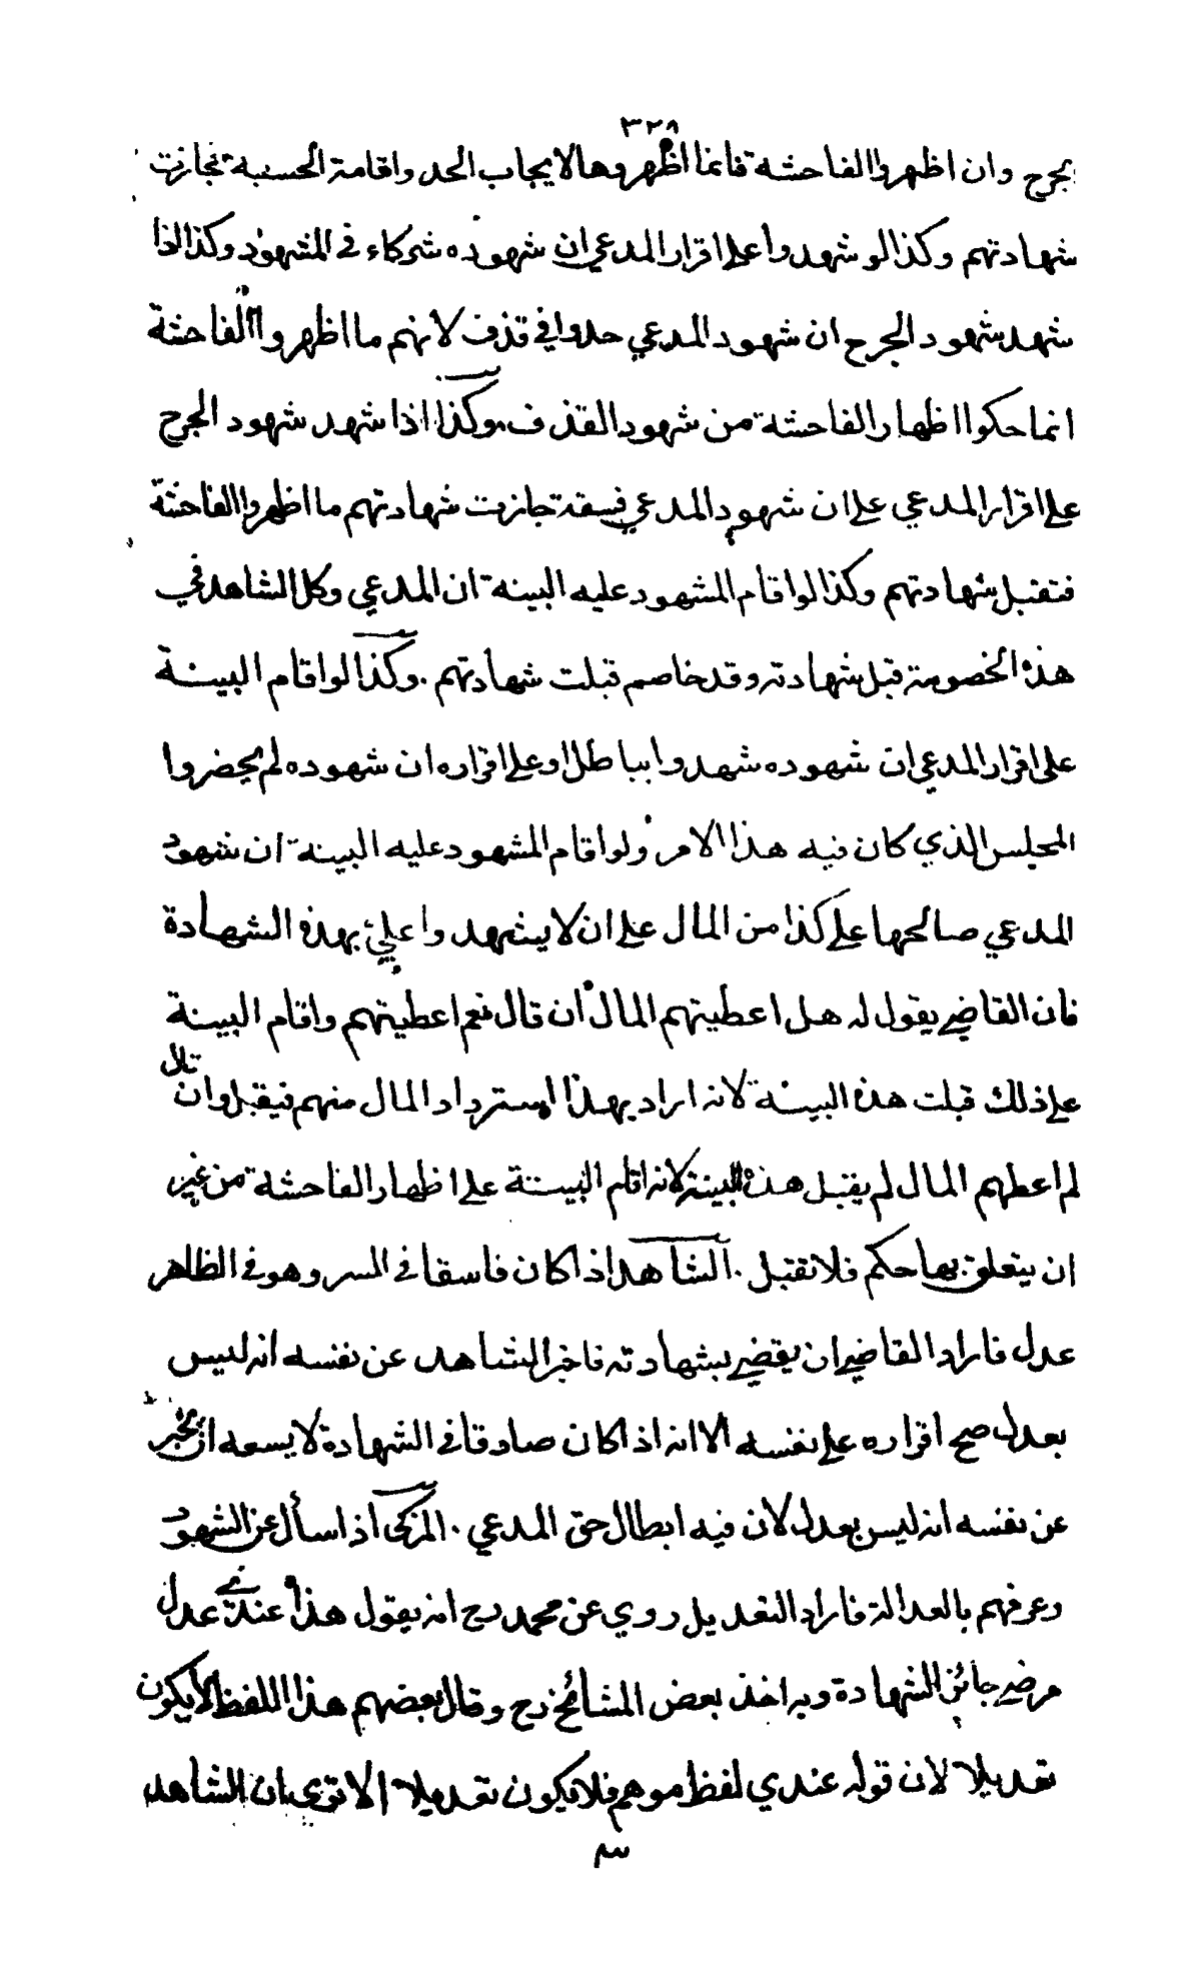 ٣٢٨
بجرح وان اظهروا الفاحشة فانما اظهروها لايجاب الحد واقامة الحسبة فجازت
شهادتهم وكذا لو شهدوا على اقرار المدعي ان شهوده شركاء في المشهود وكذا اذا
شهد شهود الجرح ان شهود المدعي حدوا في قذف لانهم ما اظهروا الفاحشة
انما حكوا اظهار الفاحشة من شهود القذف وكذا اذا شهد شهود الجرح
على اقرار المدعي على ان شهود المدعي فسقة جازت شهادتهم ما اظهروا الفاحشة
فتقبل شهادتهم وكذا لو اقام المشهود عليه البينة ان المدعي وكل الشاهد في
هذه الخصومة قبل شهادته وقد خاصم قبلت شهادتهم . وكذا لو اقام البينة
على اقرار المدعي ان شهوده شهدوا بباطل او على اقراره ان شهوده لم يحضروا
المجلس الذي كان فيه هذا الامر ولو اقام المشهود عليه البينة ان شهود
المدعي صالحها على كذا من المال على ان لا يشهدوا علي بهذه الشهادة
فان القاضي يقول له هل اعطيتهم المال ان قال نعم اعطيتهم واقام البينة
على ذلك قبلت هذه البينة لانه اراد بهذا استرداد المال منهم فيقبل وان قال
لم اعطهم المال لم يقبل هذه البينة لانه اقام البينة على اظهار الفاحشة من غير
ان يتعلق بها حكم فلا تقبل . الشاهد اذا كان فاسقا في السر وهو في الظاهر
عدل فاراد القاضي ان يقضي بشهادته فاخبر الشاهد عن نفسه انه ليس
بعدل صح اقراره على نفسه الا انه اذا كان صادقا في الشهادة لا يسعه ان يخبر
عن نفسه انه ليس بعدل لان فيه ابطال حق المدعي . المزكى اذا سأل عن الشهود
وعرفهم بالعدالة فاراد التعديل روي عن محمد رح انه يقول هذا عندي عدل
مرضي جائز الشهادة وبه اخذ بعض المشائخ رح وقال بعضهم هذا اللفظ لا يكون
تعديلا لان قوله عندي لفظ موهم فلا يكون تعديلا الا ترى ان الشاهد